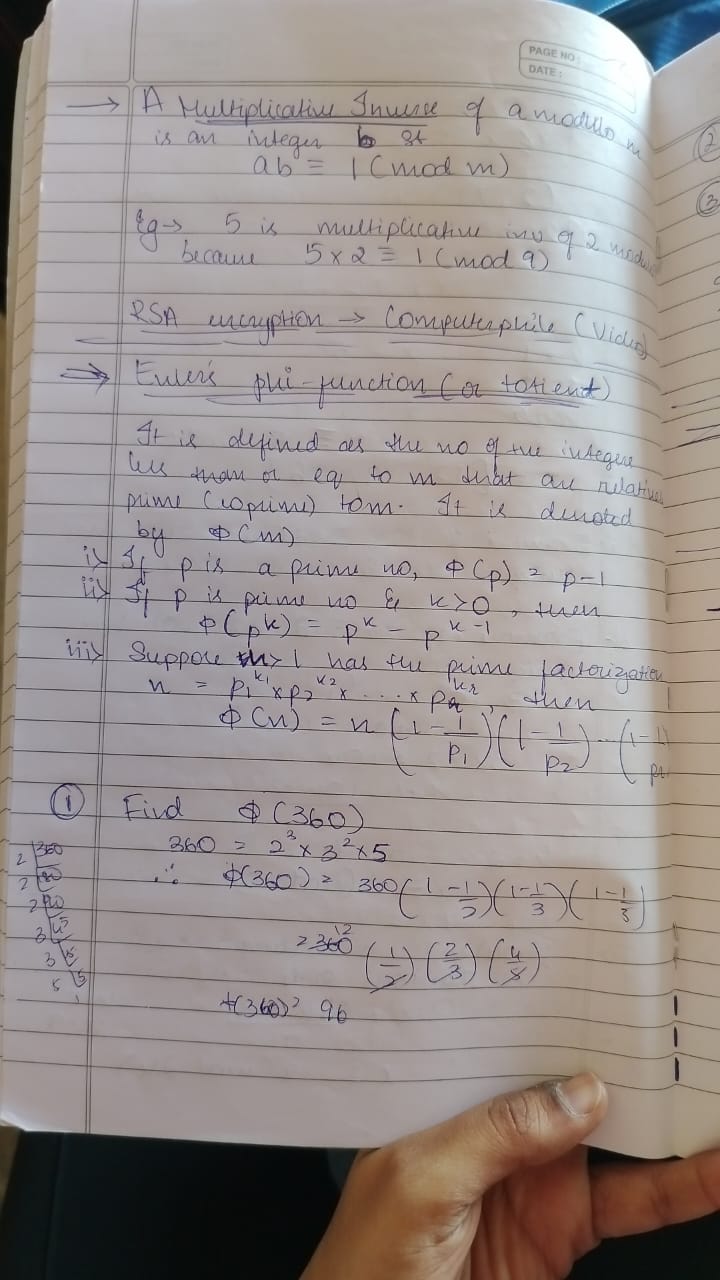 PAGE NO:
DATE:
→ A Multiplicative Inverse of a modulo m
is an integer b st
ab ≡ 1 (mod m)
Eg → 5 is multiplicative inv of 2 modulo
because 5 x 2 ≡ 1 (mod 9)
RSA encryption → Computerphile (Video)
⇒ Euler's phi-function (or totient)
It is defined as the no of +ve integers
less than or eq to m that are relative
prime (coprime) to m. It is denoted
by Φ(m)
i> If p is a prime no, Φ(p) = p-1
ii> If p is prime no & k>0, then
Φ(p^k) = p^k - p^k-1
iii> Suppose n>1 has the prime factorization
n = p1^k1 x p2^k2 x ..... x pr^kr, then
Φ(n) = n (1 - 1/p1)(1 - 1/p2) ... (1 - 1/pr
① Find Φ(360)
360 = 2^3 x 3^2 x 5
∴ Φ(360) = 360 (1 - 1/2)(1 - 1/3)(1 - 1/5)
= 360 12 (1/2)(2/3)(4/5)
Φ(360) = 96
2 360
2 180
2 90
3 45
3 15
5 5
1
2
3